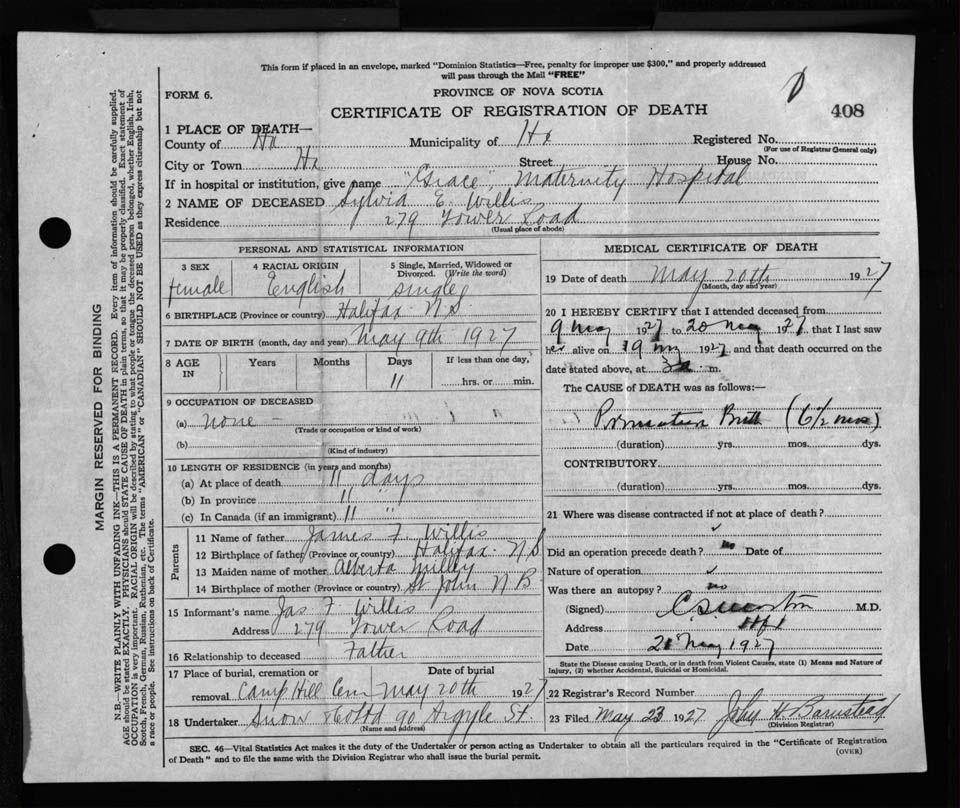 This form if placed in an envelope, marked "Dominion Statistics—Free, penalty for improper use $300," and properly addressed
will pass through the Mail "FREE"
FORM 6.
PROVINCE OF NOVA SCOTIA
CERTIFICATE OF REGISTRATION OF DEATH
408
1 PLACE OF DEATH—
County of Hx Municipality of Hx Registered No.
(For use of Registrar General only)
City or Town Hx Street House No.
If in hospital or institution, give name "Grace" Maternity Hospital
2 NAME OF DECEASED Sylvia E. Willis
Residence 279 Tower Road
(Usual place of abode)
PERSONAL AND STATISTICAL INFORMATION
3 SEX female
4 RACIAL ORIGIN English
5 Single, Married, Widowed or Divorced. (Write the word) single
6 BIRTHPLACE (Province or country) Halifax N.S.
7 DATE OF BIRTH (month, day and year) May 9th 1927
8 AGE IN Years Months Days If less than one day,
11 hrs. or min.
9 OCCUPATION OF DECEASED
(a) none -
(Trade or occupation or kind of work)
(b)
(Kind of industry)
10 LENGTH OF RESIDENCE (in years and months)
(a) At place of death 11 days
(b) In province 11 "
(c) In Canada (if an immigrant) 11 "
Parents
11 Name of father James F. Willis
12 Birthplace of father (Province or country) Halifax N S
13 Maiden name of mother Alberta
14 Birthplace of mother (Province or country) St John N B
15 Informant's name Jas F Willis
Address 279 Tower Road
16 Relationship to deceased Father
17 Place of burial, cremation or removal Camp Hill Cem Date of burial May 20th 1927
18 Undertaker Snow & Co Ltd 90 Argyle St.
(Name and address)
MEDICAL CERTIFICATE OF DEATH
19 Date of death May 20th 1927
(Month, day and year)
20 I HEREBY CERTIFY that I attended deceased from
9 May 1927 to 20 May 1927 that I last saw
her alive on 19 May 1927 and that death occurred on the
date stated above, at 3 a. m.
The CAUSE of DEATH was as follows:—
Premature Birth (6½ mos)
(duration) yrs. mos. dys.
CONTRIBUTORY
(duration) yrs. mos. dys.
21 Where was disease contracted if not at place of death?
Did an operation precede death? no Date of
Nature of operation
Was there an autopsy? no
(Signed) M.D.
Address Hfx
Date 21 May 1927
State the Disease causing Death, or in death from Violent Causes, state (1) Means and Nature of
Injury, (2) whether Accidental, Suicidal or Homicidal.
22 Registrar's Record Number
23 Filed May 23 1927 John H Barnstead
(Division Registrar)
SEC. 46—Vital Statistics Act makes it the duty of the Undertaker or person acting as Undertaker to obtain all the particulars required in the "Certificate of Registration
of Death" and to file the same with the Division Registrar who shall issue the burial permit.
(OVER)
MARGIN RESERVED FOR BINDING
N.B.—WRITE PLAINLY WITH UNFADING INK—THIS IS A PERMANENT RECORD. Every item of information should be carefully supplied.
AGE should be stated EXACTLY. PHYSICIANS should STATE CAUSE OF DEATH in plain terms, so that it may be properly classified. Exact statement of
OCCUPATION is very important. RACIAL ORIGIN will be described by stating to what people or tongue the deceased person belonged, whether English, Irish,
Scotch, French, German, Russian, Ruthenian, etc. The terms "AMERICAN" or "CANADIAN" SHOULD NOT BE USED as they express citizenship but not
a race or people. See instructions on back of Certificate.